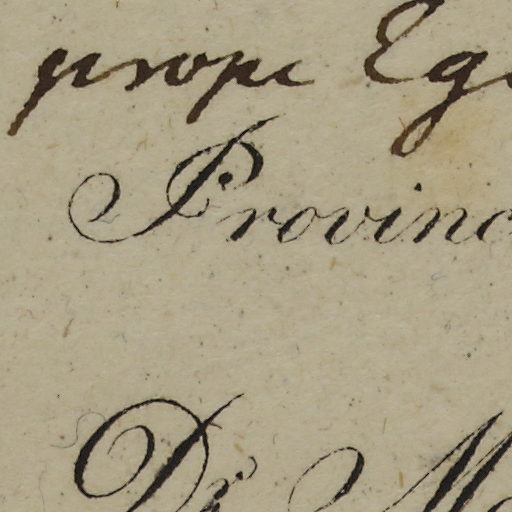 prope Eg
Provinc
Dr. M